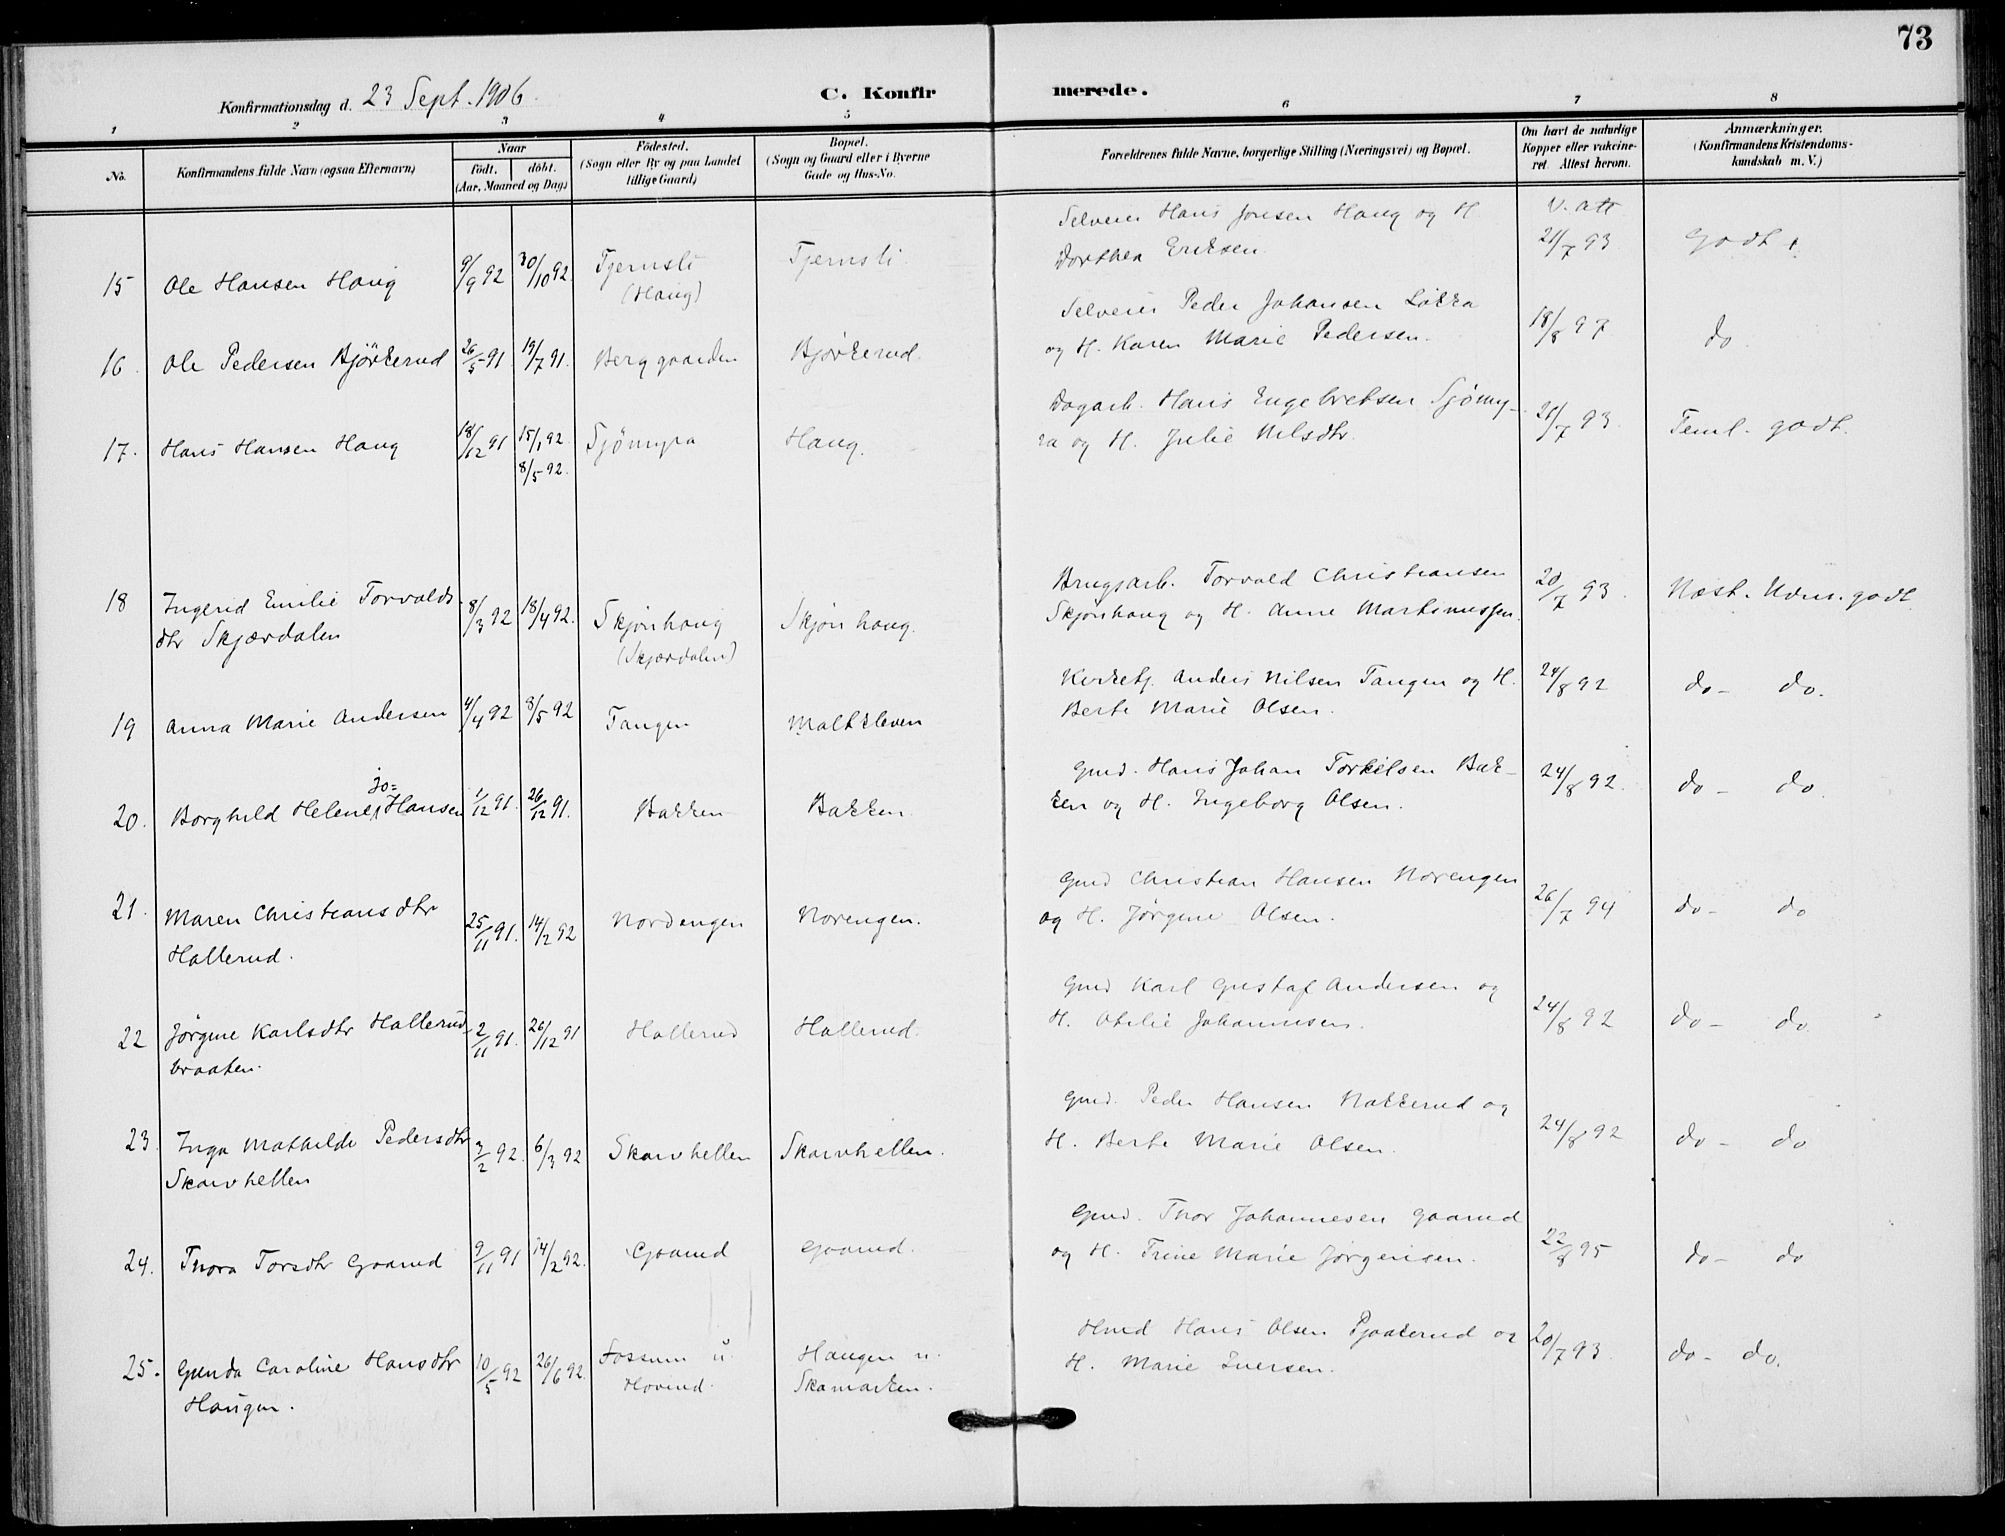 73
Konfirmationsdag d. 23 Sept. 1906. C. Konfirmerede.
1 2 3 4 5 6 7 8
No. Konfirmandens fulde Navn (ogsaa Efternavn) Naar født. døbt. (Aar, Maaned og Dag) Fødested. (Sogn eller By og paa Landet tillige Gaard) Bopæl. (Sogn og Gaard eller i Byerne Gade og Hus-No. Forældrenes fulde Navne, borgerlige Stilling (Næringsvei) og Bopæl. Om havt de naturlige Kopper eller vakcineret. Attest herom. Anmærkninger. (Konfirmandens Kristendomskundskab m. V.)
Selveier Hans Jonsen Haug og H. V. att
15 Ole Hansen Haug 9/9 92 30/10 92 Tjernsli (Haug) Tjernsli Dorthea Eriksen. 21/7 93 Godt.
Selveier Peder Johansen Løkka
16. Ole Pedersen Bjørkerud 26/5 91 19/7 91. Berg gaarden Bjørkerud. og H. Karen Marie Pedersen. 18/8 97 do.
Dagarb. Hans Engebretsen Sjømy-
17. Hans Hansen Haug 18/12 91 15/1 92 8/5 92. Sjømyra Haug. ra og H. Julie Nilsdtr. 21/7 93. Teml. godt.
18 Ingerid Emilie Torvalds- 8/3 92 18/4 92. Skjønhaug Skjønhaug. Brugsarb. Torvald Christiansen 20/7 93. Næst. Udm. godt
dtr Skjærdalen (Skjærdalen) Skjønhaug og H. Anne Martinussen.
Kirketj. Anders Nilsen Tangen og H.
19 Anna Marie Andersen 4/4 92 8/5 92 Tangen Maltkleven Berte Marie Olsen. 24/8 92 do - do.
Gmd. Hans Johan Torkilsen Bak-
jo=
20. Borghild Helene Hansen 1/12 91. 26/12 91. Bakken Bakken. ken og H. Ingeborg Olsen. 24/8 92. do - do.
Gmd Christian Hansen Norengen
21. Maren Christiansdtr 25/11 91. 14/2 92 Nordengen Norengen. og H. Jørgine Olsen. 26/7 94 do - do
Hallerud.
Gmd Karl Gustaf Andersen og
22 Jørgine Karlsdtr Hallerud- 2/11 91. 26/12 91 Hallerud Hallerud. H. Otelie Johannesen. 24/8 92 do - do.
braaten.
Gmd. Peder Hansen Nakkerud og
23. Inga Mathilde Pedersdtr 3/2 92. 6/3 92 Skarvhellen Skarvhellen. H. Berte Marie Olsen. 24/8 92 do - do
Skarvhellen
Gmd. Thor Johannesen Gaarud
24. Thora Torsdtr Gaarud 9/11 91 14/2 92. Gaarud Gaarud. og H. Trine Marie Jørgensen. 22/8 95 do - do
Hmd Hans Olsen Pjaakerud og
25. Gunda Caroline Hansdtr 10/5 92 26/6 92. Fossum u. Haugen u. H. Marie Iversen. 20/7 93. do - do.
Haugen. Hovind. Skamarken.